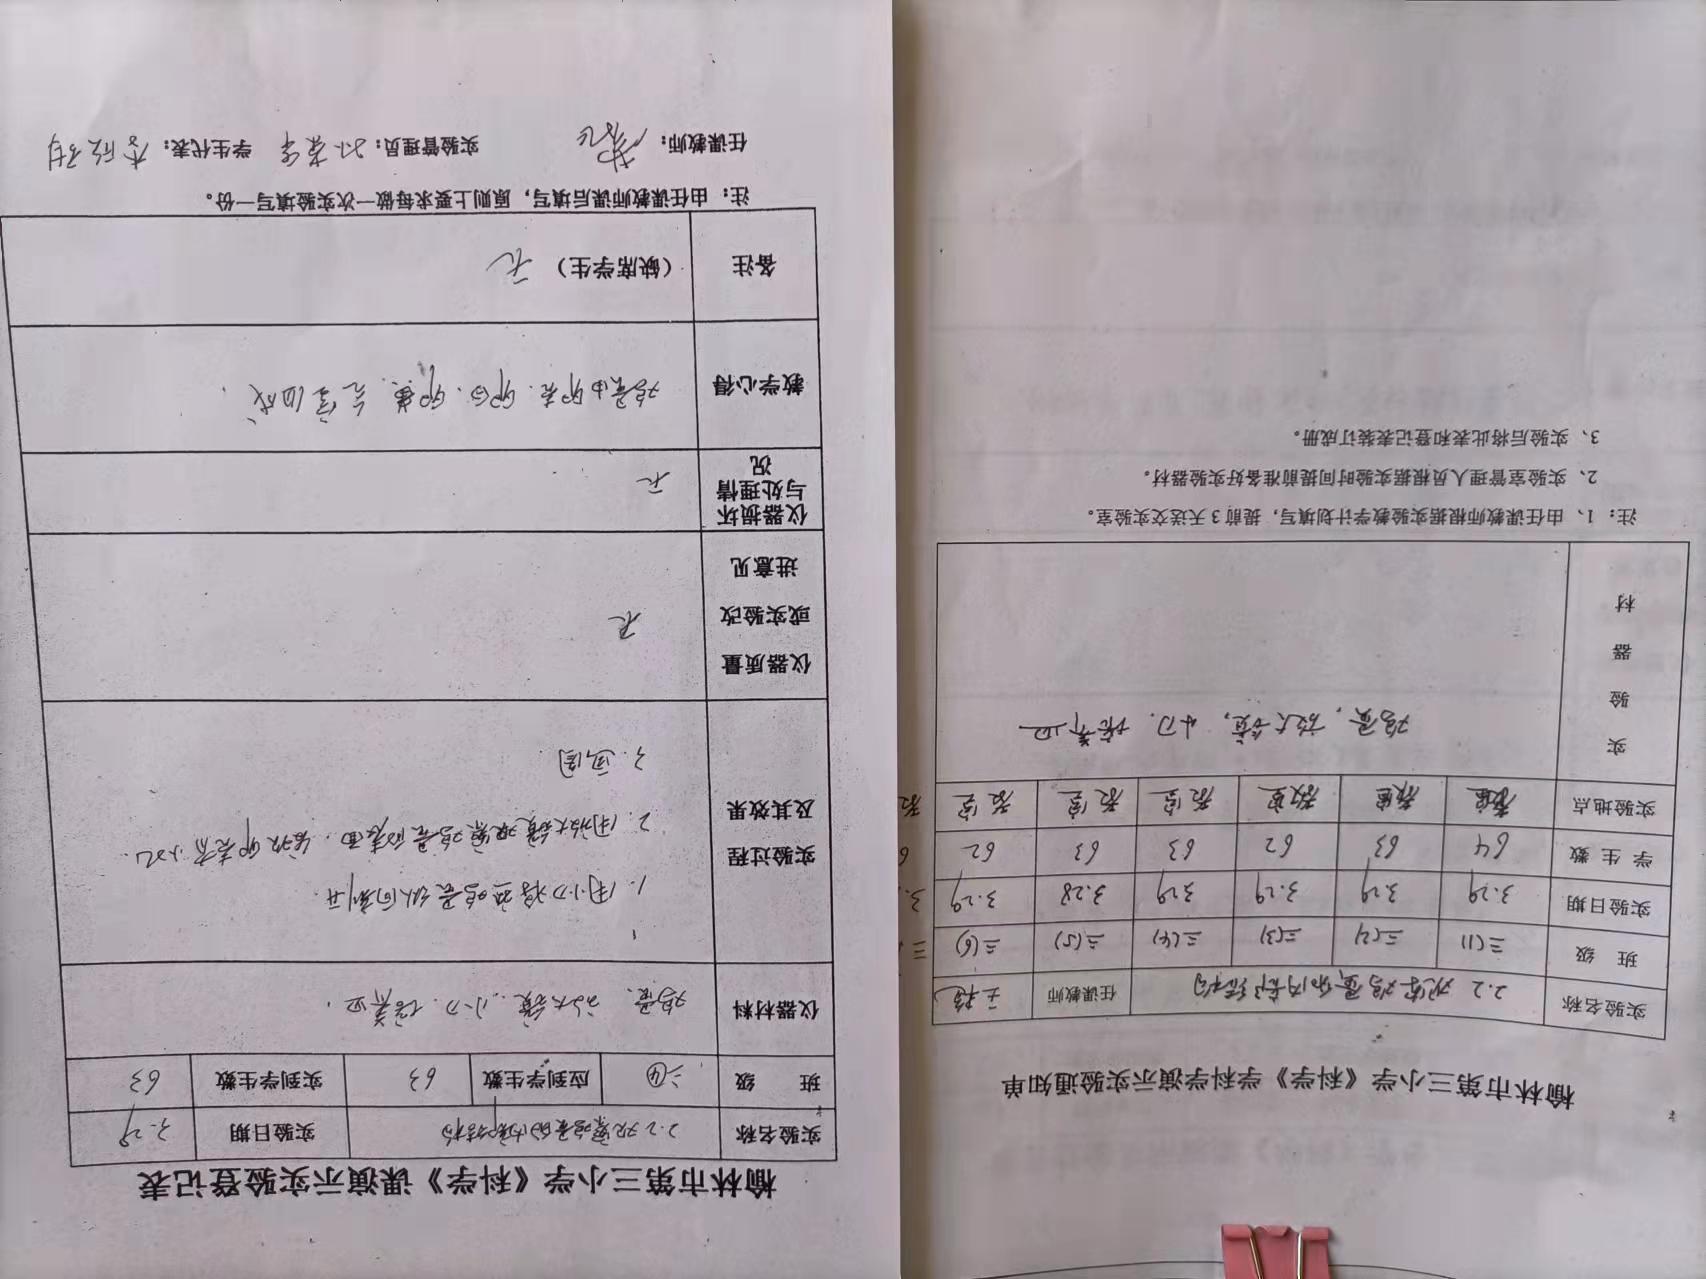 榆林市第三小学《科学》学科学演示实验通知单
实验名称 2.2 观察鸡蛋的内部结构 任课教师
班 级 三(1) 三(2) 三(3) 三(4) 三(5) 三(6)
实验日期 3.29 3.29 3.29 3.29 3.28 3.29
学生数 64 63 62 63 63 62
实验地点 教室 教室 教室 教室 教室 教室
实验器材 鸡蛋, 放大镜, 小刀. 培养皿
注: 1、由任课教师根据实验教学计划填写, 提前 3 天送交实验室。
2、实验室管理人员根据实验时间提前准备好实验器材。
3、实验后将此表和登记表装订成册。
榆林市第三小学《科学》课演示实验登记表
实验名称 2.2 观察鸡蛋的内部结构 实验日期 3.29
班 级 三④ 应到学生数 63 实到学生数 63
仪器材料 鸡蛋、放大镜、小刀、培养皿.
实验过程及其效果
1. 用小刀将鸡蛋纵向剖开
2. 用放大镜观察鸡蛋的表面. 卵壳有小孔.
3. 画图.
仪器质量或实验改进意见 无
仪器损坏与处理情况 无
教学心得 鸡蛋由卵壳. 卵白. 卵黄. 气室组成.
备注 (缺席学生) 无
注: 由任课教师课后填写, 原则上要求每做一次实验填写一份。
任课教师: 实验管理员: 学生代表: